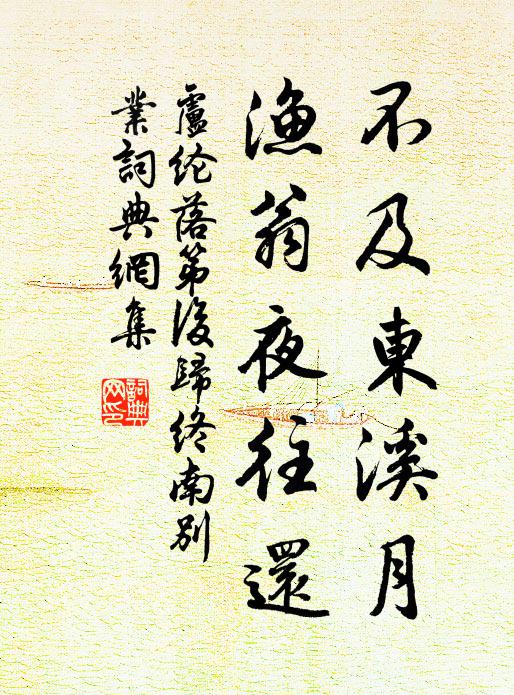 不及東溪月
漁翁夜往還
盧綸落第後歸終南別
業詞典網集
詞典
网印